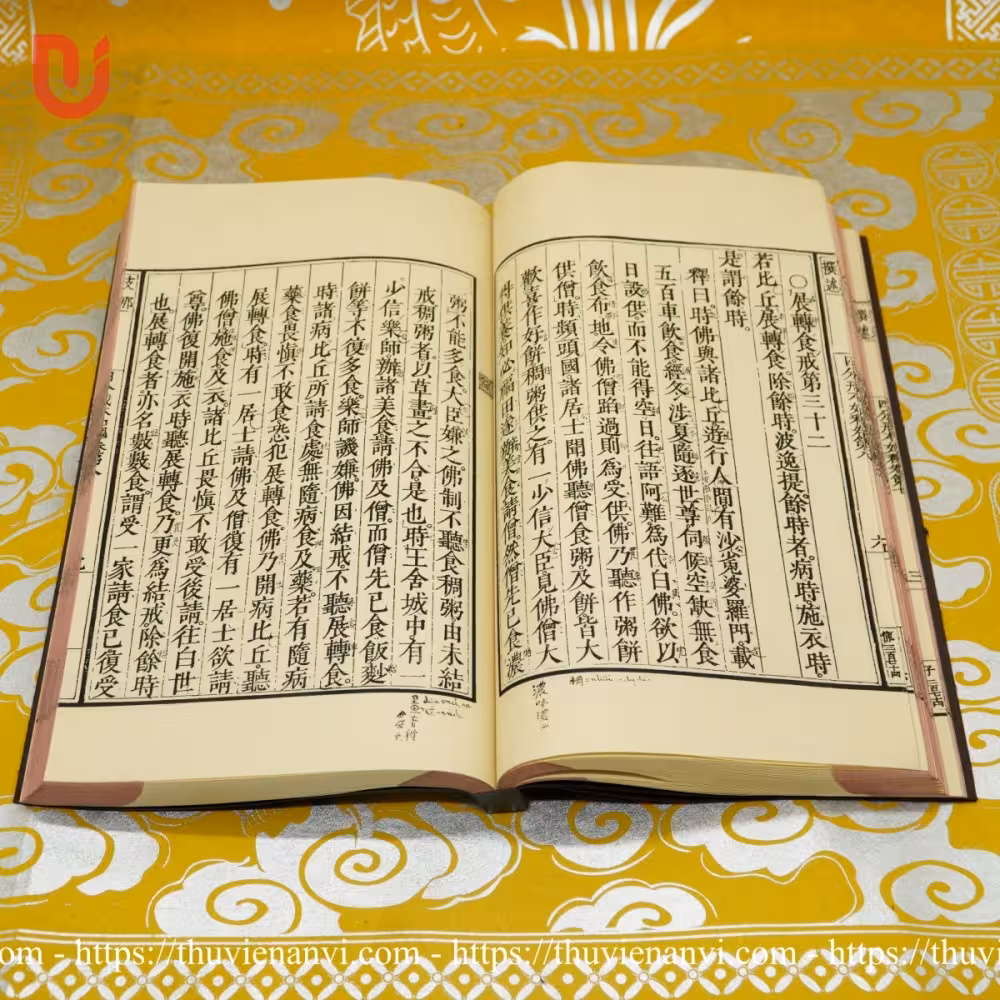 撰述
○展轉食戒第三十二
若比丘展轉食。除餘時。波逸提。餘時者。病時。施衣時。
是謂餘時。
釋曰時佛與諸比丘遊行人間有沙㝹婆羅門載
五百車飲食經冬涉夏隨逐世尊伺候空缺無食
日設供而不能得空日。往語阿難為代白佛。欲以
飲食布地令佛僧蹈過則為受供。佛乃聽作粥餅
供僧。時頻頭國諸居士聞佛聽僧食粥。及餅皆大
歡喜作好餅稠粥供之。有一少信大臣見佛僧大
得供養知必福田遂辦美食請僧。然僧先已食濃
粥不能多食。大臣嫌之。佛制不聽食稠粥由未結
戒稠粥者以草畫之不合是也。時王舍城中有一
少信樂師辦諸美食請佛及僧。而僧先已食飯麨
餅等不復多食。樂師譏嫌佛因結戒。不聽展轉食。
時諸病比丘所請食處無隨病食及藥。若有隨病
藥食畏慎不敢食。恐犯展轉食。佛乃開病比丘。聽
展轉食時有一居士請佛及僧。復有一居士欲請
佛僧施食及衣。諸比丘畏慎不敢受後請。往白世
尊。佛復開施衣時聽展轉食。乃更為結戒。除餘時
也。展轉食者亦名數數食。謂受一家請食已復受
支那
濃
https://thuvienanvi.com - https://thuvienanvi.com